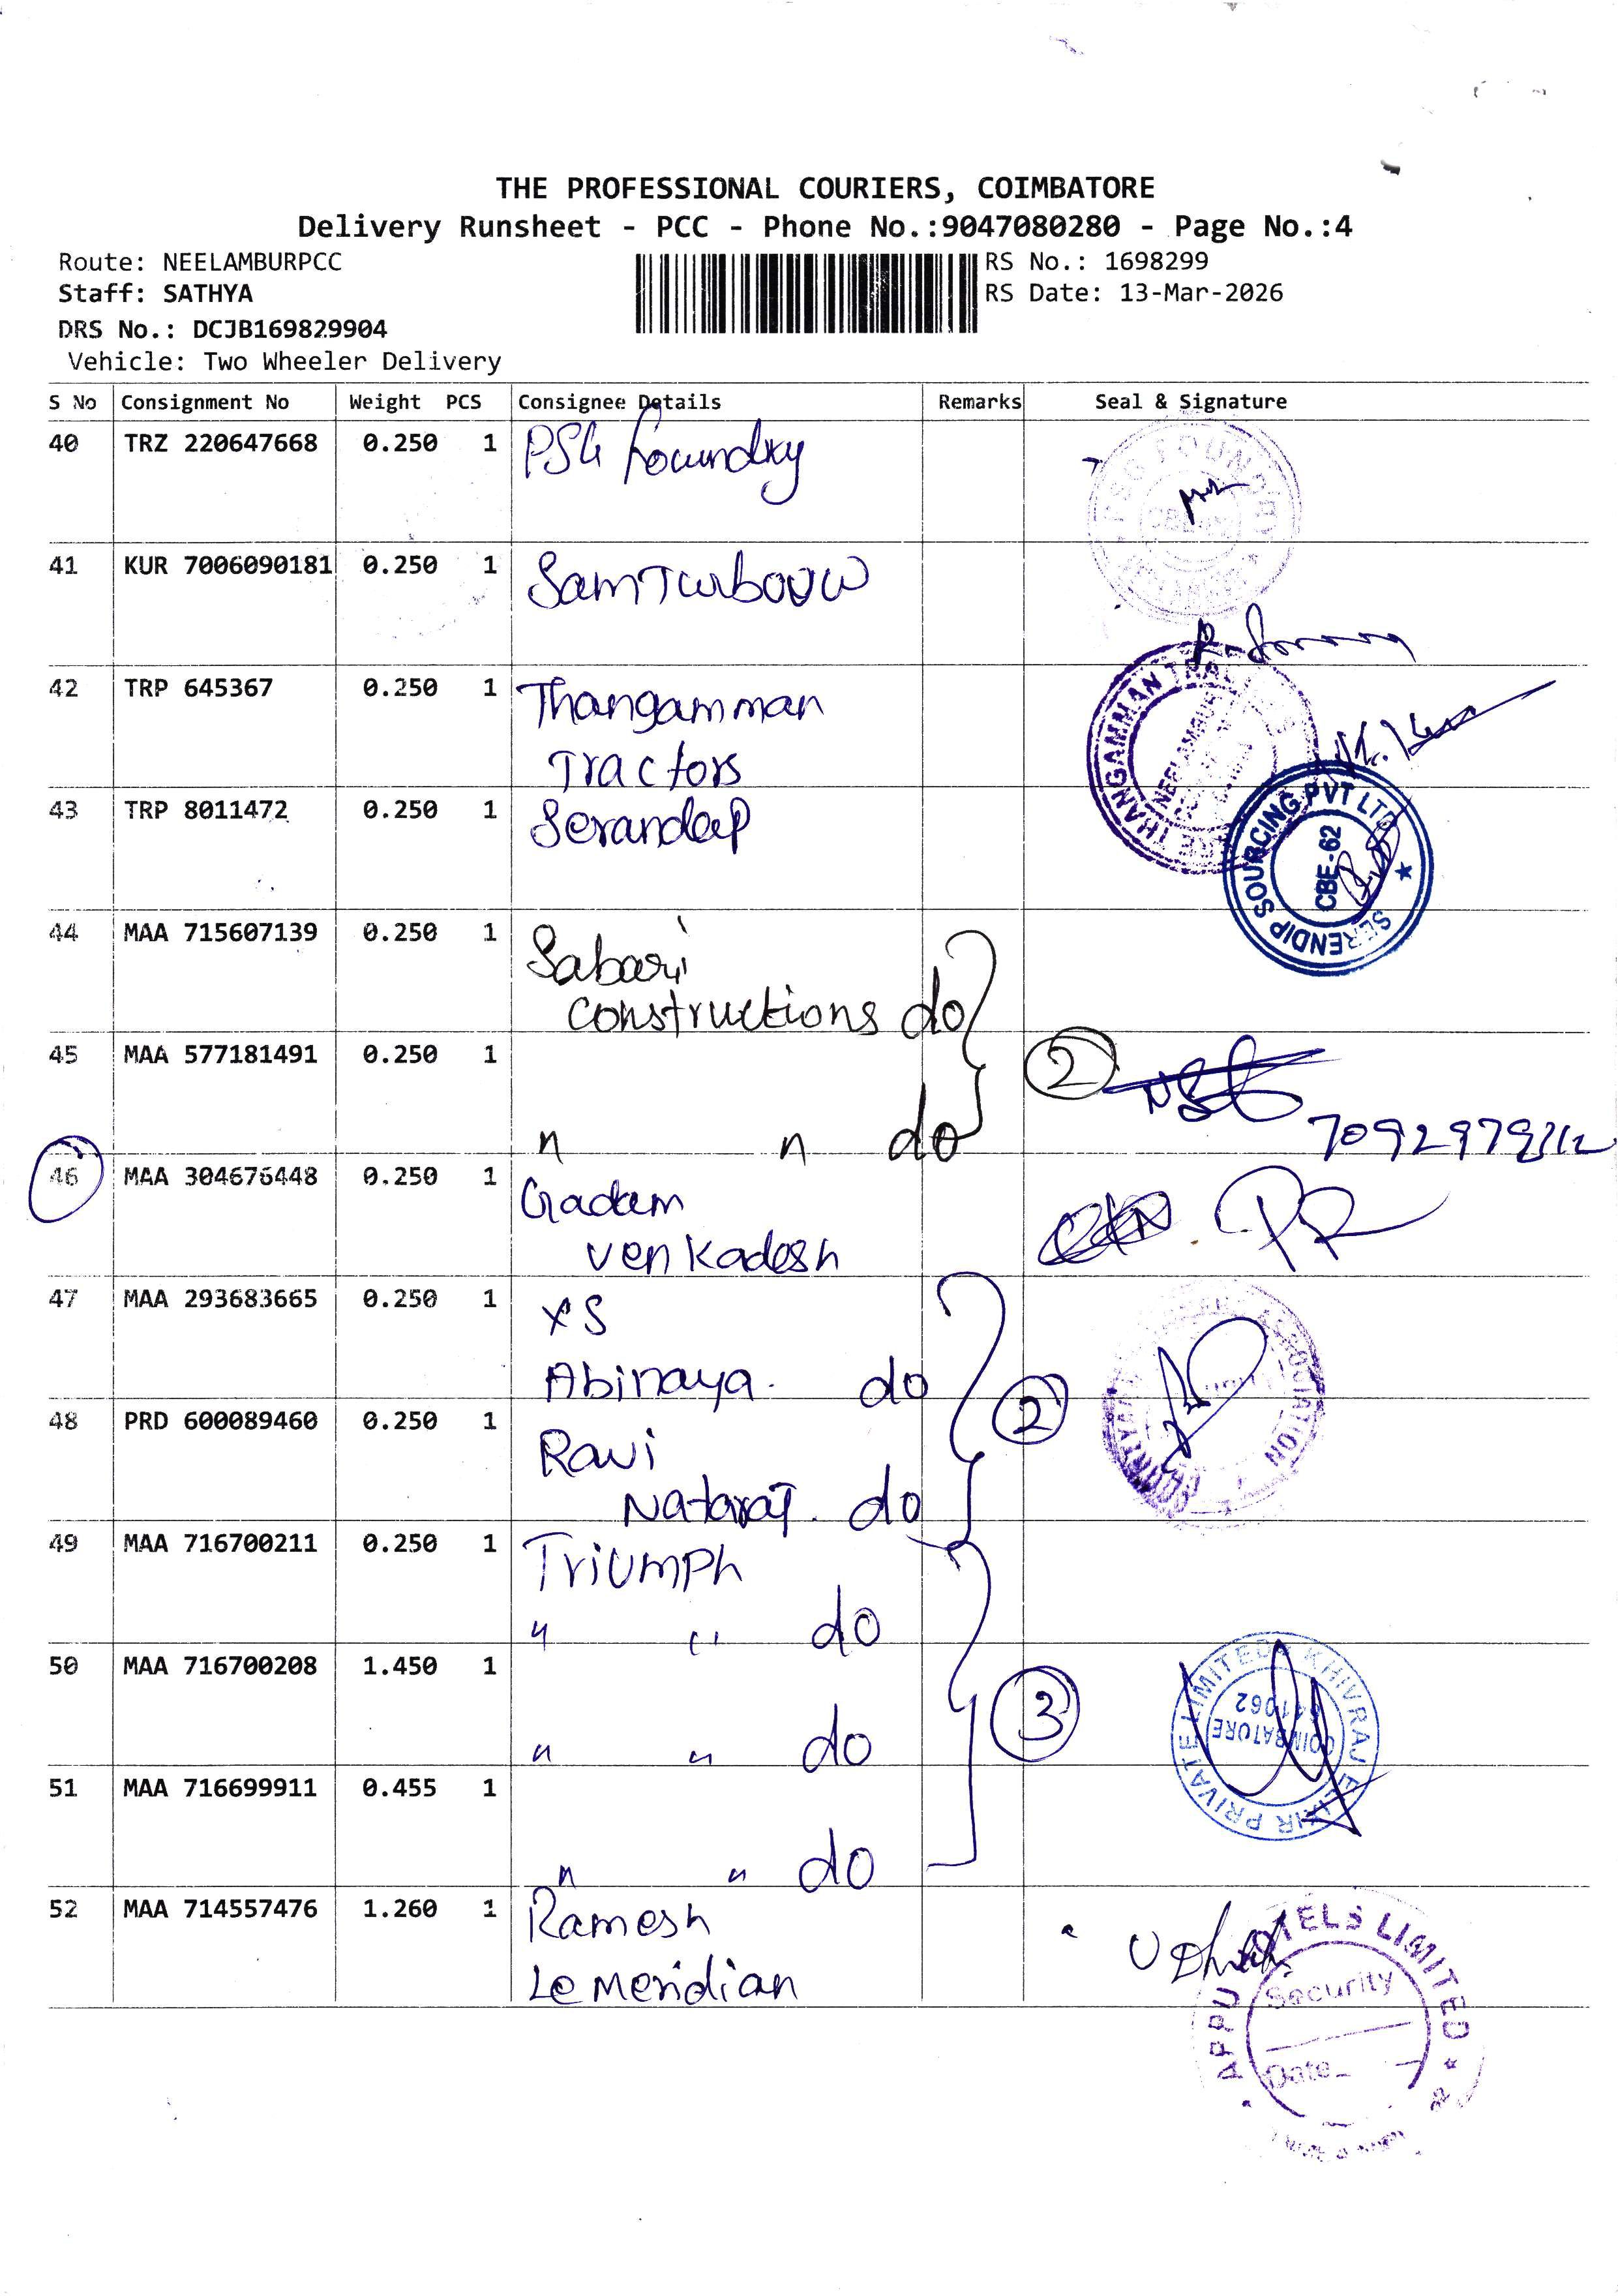 THE PROFESSIONAL COURIERS, COIMBATORE
Delivery Runsheet - PCC - Phone No.:9047080280 - Page No.:4
Route: NEELAMBURPCC
RS No.: 1698299
Staff: SATHYA
RS Date: 13-Mar-2026
DRS No.: DCJB169829904
Vehicle: Two Wheeler Delivery
S No Consignment No Weight PCS Consignee Details Remarks Seal & Signature
40 TRZ 220647668 0.250 1 PSG Foundry
PSG FOUNDRY
41 KUR 7006090181 0.250 1 SamTurbo
42 TRP 645367 0.250 1 Thangamman
Tractors
THANGAMMAN
NEELAMBUR
43 TRP 8011472 0.250 1 Serandap
SERENDIP SOURCING PVT LTD
CBE-62
44 MAA 715607139 0.250 1 Sabari
constructions do
45 MAA 577181491 0.250 1
" " do
2
46 MAA 304676448 0.250 1 Gadam
venkadesh
47 MAA 293683665 0.250 1 XS
Abinaya. do
48 PRD 600089460 0.250 1 Ravi
Nataraj. do
2
ASSOCIATION
49 MAA 716700211 0.250 1 Triumph
" " do
50 MAA 716700208 1.450 1
" " do
3
KHIVRAJ PRIVATE LIMITED
COIMBATORE
51 MAA 716699911 0.455 1
" " do
52 MAA 714557476 1.260 1 Ramesh
Le Meridian
APPU HOTELS LIMITED
Security
Date